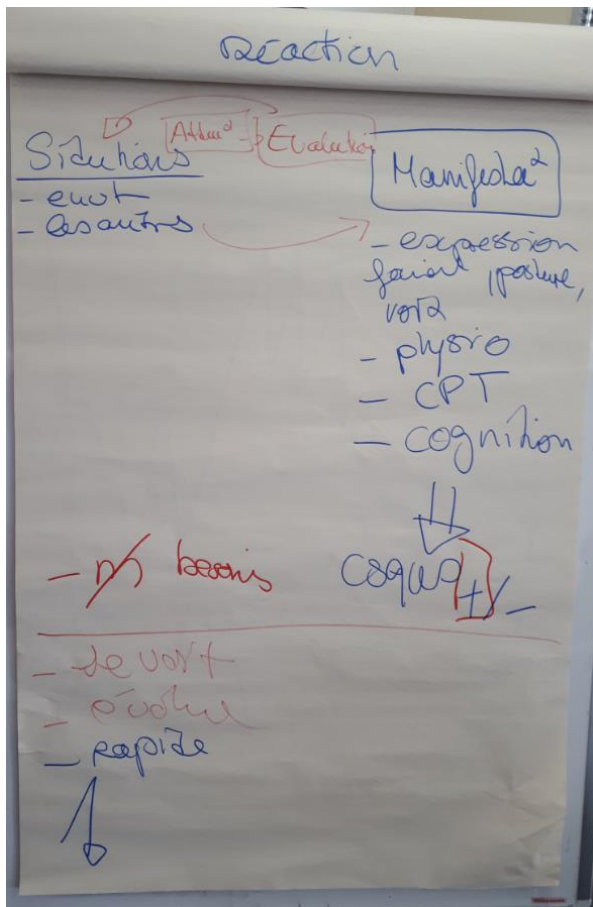 Réaction
Attent° → Evaluation
Situations
Manifesta°
- envt
- les autres
- expression
facial, posture,
voix
- physio
- CPT
- cognition
- besoins
csq +/-
- se voit
- évolue
- rapide